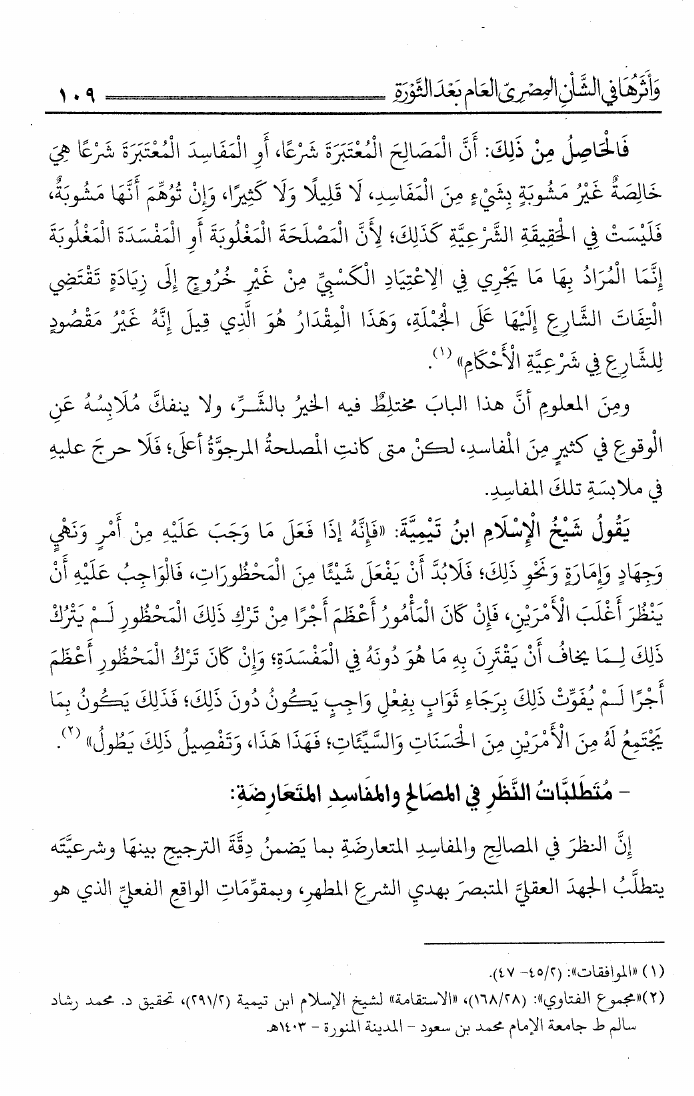 وَأَثَرُهَا فِي الشَّأْنِ المِصْرِيِّ العَامِ بَعْدَ الثَّوْرَةِ ١٠٩
فَالْحَاصِلُ مِنْ ذَلِكَ: أَنَّ الْمَصَالِحَ الْمُعْتَبَرَةَ شَرْعًا، أَوِ الْمَفَاسِدَ الْمُعْتَبَرَةَ شَرْعًا هِيَ
خَالِصَةٌ غَيْرُ مَشُوبَةٍ بِشَيْءٍ مِنَ الْمَفَاسِدِ، لَا قَلِيلًا وَلَا كَثِيرًا، وَإِنْ تُوُهِّمَ أَنَّهَا مَشُوبَةٌ،
فَلَيْسَتْ فِي الْحَقِيقَةِ الشَّرْعِيَّةِ كَذَلِكَ؛ لِأَنَّ الْمَصْلَحَةَ الْمَغْلُوبَةَ أَوِ الْمَفْسَدَةَ الْمَغْلُوبَةَ
إِنَّمَا الْمُرَادُ بِهَا مَا يَجْرِي فِي الِاعْتِيَادِ الْكَسْبِيِّ مِنْ غَيْرِ خُرُوجٍ إِلَى زِيَادَةٍ تَقْتَضِي
الْتِفَاتَ الشَّارِعِ إِلَيْهَا عَلَى الْجُمْلَةِ، وَهَذَا الْمِقْدَارُ هُوَ الَّذِي قِيلَ إِنَّهُ غَيْرُ مَقْصُودٍ
لِلشَّارِعِ فِي شَرْعِيَّةِ الْأَحْكَامِ» (١).
ومِنَ المعلومِ أنَّ هذا البابَ مختلِطٌ فيه الخيرُ بالشَّـرِّ، ولا ينفكَّ مُلَابِسُهُ عَنِ
الْوقوعِ في كثيرٍ مِنَ الْمفاسدِ، لـكنْ متى كانتِ الْمصلحةُ المرجوَّةُ أعلَى؛ فَلَا حرجَ عليهِ
في ملابسَةِ تلكَ المفاسِدِ.
يَقُولُ شَيْخُ الْإِسْلَامِ ابنُ تَيْمِيَّةَ: «فَإِنَّهُ إذَا فَعَلَ مَا وَجَبَ عَلَيْهِ مِنْ أَمْرٍ وَنَهْيٍ
وَجِهَادٍ وَإِمَارَةٍ وَنَحْوِ ذَلِكَ؛ فَلَابُدَّ أَنْ يَفْعَلَ شَيْئًا مِنَ الْمَحْظُورَاتِ، فَالْوَاجِبُ عَلَيْهِ أَنْ
يَنْظُرَ أَغْلَبَ الْأَمْرَيْنِ، فَإِنْ كَانَ الْمَأْمُورُ أَعْظَمَ أَجْرًا مِنْ تَرْكِ ذَلِكَ الْمَحْظُورِ لَـمْ يَتْرُكْ
ذَلِكَ لِـمَا يخافُ أَنْ يَقْتَرِنَ بِهِ مَا هُوَ دُونَهُ فِي الْمَفْسَدَةِ؛ وَإِنْ كَانَ تَرْكُ الْمَحْظُورِ أَعْظَمَ
أَجْرًا لَـمْ يُفَوِّتْ ذَلِكَ بِرَجَاءِ ثَوَابٍ بِفِعْلِ وَاجِبٍ يَكُونُ دُونَ ذَلِكَ؛ فَذَلِكَ يَكُونُ بِمَا
يَجْتَمِعُ لَهُ مِنَ الْأَمْرَيْنِ مِنَ الْحَسَنَاتِ وَالسَّيِّئَاتِ؛ فَهَذَا هَذَا، وَتَفْصِيلُ ذَلِكَ يَطُولُ» (٢).
- مُتَطلَّبَاتُ النَّظَرِ فِي المصَالحِ والمفَاسِدِ المتَعَارِضَةِ:
إنَّ النظرَ في المصالحِ والمفاسِدِ المتعارضَةِ بما يَضمنُ دِقَّةَ الترجيحِ بينهَا وشرعيَّتَه
يتطلَّبُ الجهدَ العقليَّ المتبصرَ بهديِ الشرعِ المطهرِ، وبمقوِّمَاتِ الواقعِ الفعليِّ الذي هو
(١) «الموافقات»: (٢/ ٤٥- ٤٧).
(٢) «مجموع الفتاوي»: (٢٨/ ١٦٨)، «الاستقامة» لشيخ الإسلام ابن تيمية (٢/ ٢٩١)، تحقيق د. محمد رشاد
سالم ط جامعة الإمام محمد بن سعود - المدينة المنورة - ١٤٠٣هـ.